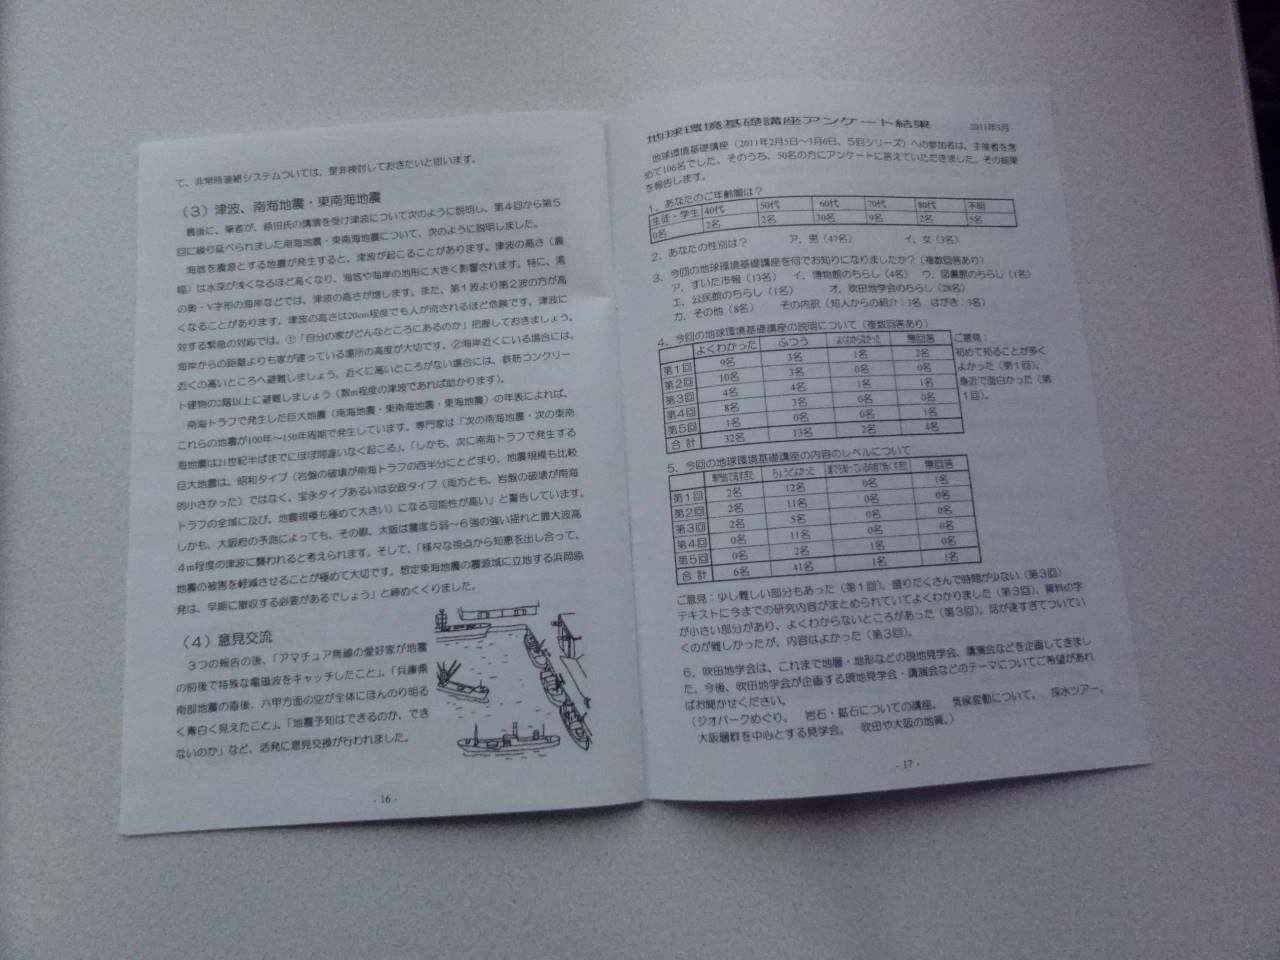 て、非常時連絡システムついては、是非検討しておきたいと思います。
（３）津波、南海地震・東南海地震
最後に、筆者が、原田氏の講演を受け津波について次のように説明し、第４回から第５
回に繰り延べられました南海地震・東南海地震について、次のように説明しました。
海底を震源とする地震が発生すると、津波が起こることがあります。津波の高さ（震
幅）は水深が浅くなるほど高くなり、海底や海岸の地形に大きく影響されます。特に、湾
の奥・V字形の海岸などでは、津波の高さが増します。また、第１波より第２波の方が高
くなることがあります。津波の高さは20cm程度でも人が流されるほど危険です。津波に
対する緊急の対応では、①「自分の家がどんなところにあるのか」把握しておきましょう。
海岸からの距離よりも家が建っている場所の高度が大切です。②海岸近くにいる場合には、
近くの高いところへ避難しましょう。近くに高いところがない場合には、鉄筋コンクリー
ト建物の2階以上に避難しましょう（数m程度の津波であれば助かります）。
南海トラフで発生した巨大地震（南海地震・東南海地震・東海地震）の年表によれば、
これらの地震が100年～150年周期で発生しています。専門家は「次の南海地震・次の東南
海地震は21世紀半ばまでにほぼ間違いなく起こる」、「しかも、次に南海トラフで発生する
巨大地震は、昭和タイプ（岩盤の破壊が南海トラフの西半分にとどまり、地震規模も比較
的小さかった）ではなく、宝永タイプあるいは安政タイプ（両方とも、岩盤の破壊が南海
トラフの全域に及び、地震規模も極めて大きい）になる可能性が高い」と警告しています。
しかも、大阪府の予測によっても、その際、大阪は震度５弱～６強の強い揺れと最大波高
４m程度の津波に襲われると考えられます。そして、「様々な視点から知恵を出し合って、
地震の被害を軽減させることが極めて大切です。想定東海地震の震源域に立地する浜岡原
発は、早期に撤収する必要があるでしょう」と締めくくりました。
（４）意見交流
３つの報告の後、「アマチュア無線の愛好家が地震
の前後で特殊な電磁波をキャッチしたこと」、「兵庫県
南部地震の直後、六甲方面の空が全体にほんのり明る
く青白く見えたこと」、「地震予知はできるのか、でき
ないのか」など、活発に意見交換が行われました。
- 16 -
地球環境基礎講座アンケート結果 2011年3月
地球環境基礎講座（2011年2月5日～3月6日、５回シリーズ）への参加者は、主催者を含
めて106名でした。そのうち、50名の方にアンケートに答えていただきました。その結果
を報告します。
１．あなたのご年齢層は？
生徒・学生 40代 50代 60代 70代 80代 不明
0名 2名 2名 30名 9名 2名 5名
２．あなたの性別は？ ア．男（47名） イ．女（3名）
３．今回の地球環境基礎講座を何でお知りになりましたか？（複数回答あり）
ア．すいた市報（13名） イ．博物館のちらし（4名） ウ．図書館のちらし（1名）
エ．公民館のちらし（1名） オ．吹田地学会のちらし（28名）
カ．その他（8名） その内訳（知人からの紹介：3名 はがき：3名）
４．今回の地球環境基礎講座の説明について（複数回答あり）
よくわかった ふつう よくわからなかった 無回答
第１回 9名 3名 1名 2名
第２回 10名 3名 0名 0名
第３回 4名 4名 1名 1名
第４回 8名 3名 0名 0名
第５回 1名 0名 0名 1名
合 計 32名 13名 2名 4名
ご意見：
初めて知ることが多く
よかった（第１回）。
身近で面白かった（第
１回）。
５．今回の地球環境基礎講座の内容のレベルについて
ちょうどよかった 無回答
第１回 2名 12名 0名 1名
第２回 2名 11名 0名 0名
第３回 2名 5名 0名 0名
第４回 0名 11名 0名 0名
第５回 0名 2名 1名 0名
合 計 6名 41名 1名 1名
ご意見：少し難しい部分もあった（第１回）。盛りだくさんで時間が少ない（第３回）
テキストに今までの研究内容がまとめられていてよくわかりました（第３回）。資料の字
が小さい部分があり、よくわからないところがあった（第３回）。話が速すぎてついてい
くのが難しかったが、内容はよかった（第３回）。
６．吹田地学会は、これまで地層・地形などの現地見学会、講演会などを企画してきまし
た。今後、吹田地学会が企画する現地見学会・講演会などのテーマについてご希望があれ
ばお聞かせください。
（ジオパークめぐり。 岩石・鉱石についての講座。 気候変動について。 採水ツアー。
大阪層群を中心とする見学会。 吹田や大阪の地質。）
- 17 -